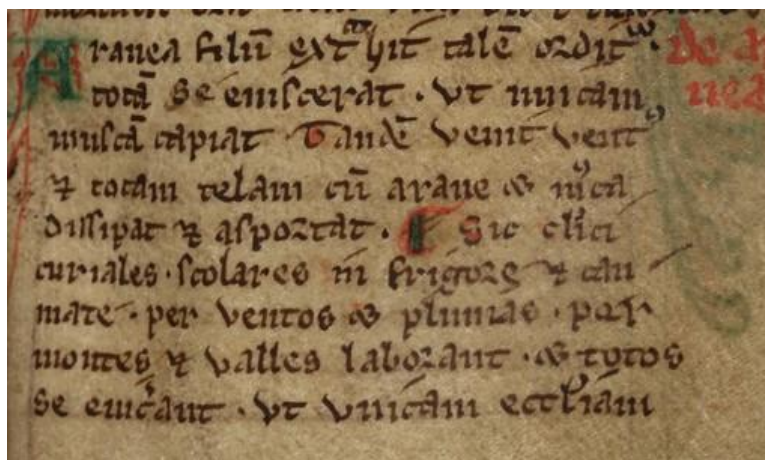 Aranea filū extͣhit talē ordit᷑ De a
totā se euiscerat · vt unicam nea
muscā capiat Tandē venit vent᷒
⁊ totam telam cū aranea ⁊ musca
dissipat ⁊ asportat · ¶ Sic cl̄ici
curiales · scolares in frigore ⁊ cau
mate · per ventos ⁊ pluuias · per
montes ⁊ valles laborant · ⁊ totos
se euisc̄ant · vt vnicam eccl̄iam